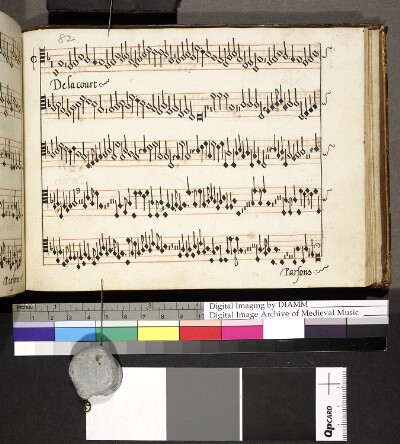 82
Delacourt
Parsons
Digital Imaging by DIAMM
Digital Image Archive of Medieval Music
QPCARD